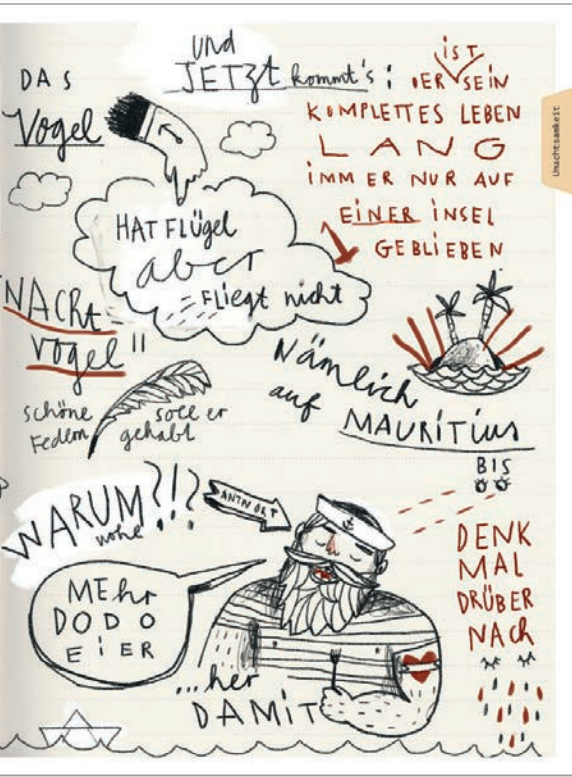 DAS
Vogel
und
JETZt kommt's:
IST
DER SEIN
KOMPLETTES LEBEN
LANG
iMMER NUR AUF
EINER iNSEL
GEBLIEBEN
Unachtsamkeit
HAT FLÜGEL
aber
FLiEgt nicht
"NACKt
VOgEL"
schöne
Federn
soll er
gehabt
Nämlich
auf
MAURiTius
BIS
WARUM?!?
wohl
ANTWORT
DENK
MAL
DRÜBER
NAch
MEhr
DODO
EiER
...her
DAMiT